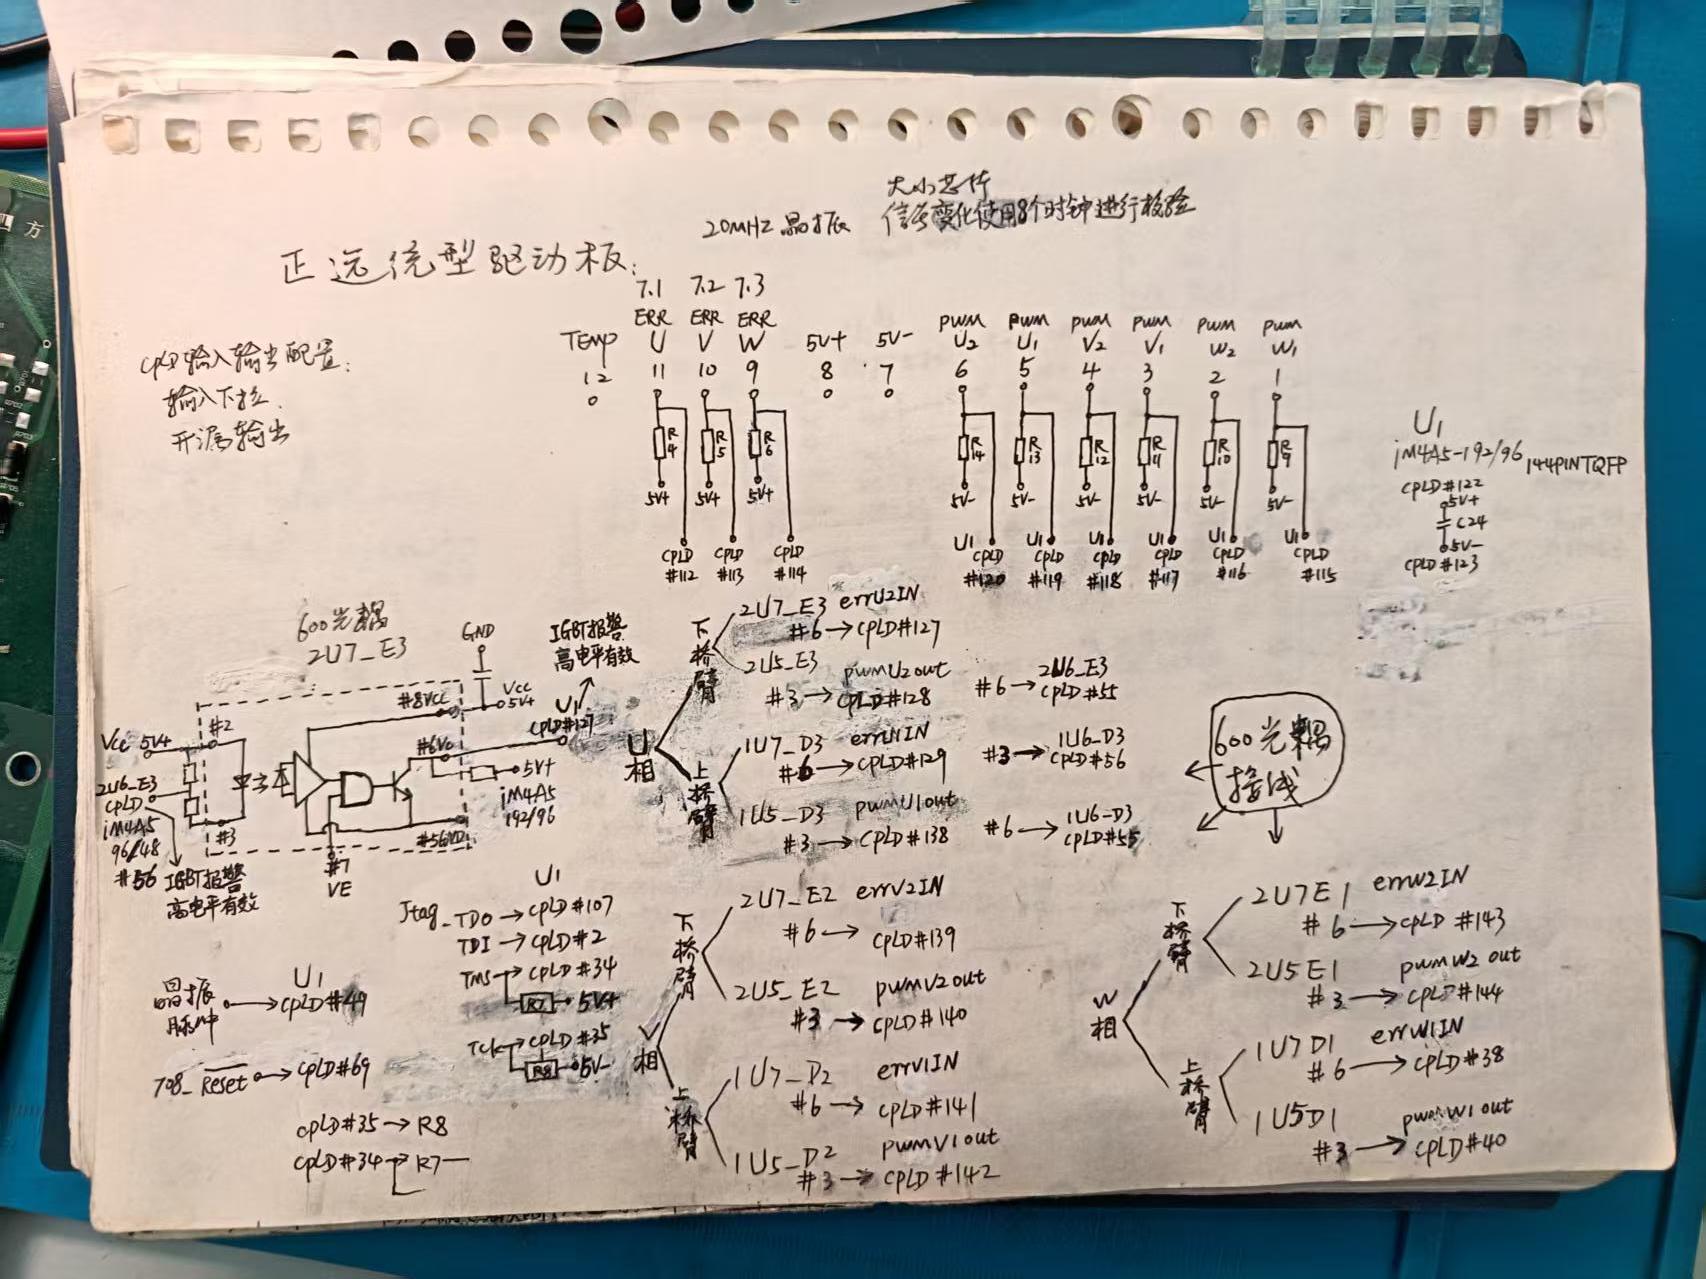 大小芯片
20MHZ 晶振 信号变化使用8个时钟进行校验
正远统型驱动板:
CPLD输入输出配置:
输入下拉.
开漏输出
7.1 7.2 7.3
ERR ERR ERR PWM PWM PWM PWM PWM PWM
TEMP U V W 5V+ 5V- U2 U1 V2 V1 W2 W1
12 11 10 9 8 7 6 5 4 3 2 1
R4 R5 R6 R14 R13 R12 R11 R10 R9
5V+ 5V+ 5V+ 5V- 5V- 5V- 5V- 5V- 5V-
CPLD CPLD CPLD U1 CPLD U1 CPLD U1 CPLD U1 CPLD U1 CPLD U1 CPLD
#112 #113 #114 #120 #119 #118 #117 #116 #115
U1
iM4A5-192/96 144PINTQFP
CPLD#122
5V+
C24
5V-
CPLD#123
600光耦
2U7_E3
GND
IGBT报警
高电平有效
#8VCC
Vcc
5V+
U1
CPLD#127
#2
Vcc 5V+
#6Vo
5V+
iM4A5
192/96
2U6_E3
CPLD
iM4A5
96/48
#56
#3
#7
VE
IGBT报警
高电平有效
U相
下桥臂
2U7_E3 errU2IN
#6→CPLD#127
2U5_E3 pwmU2out
#3→CPLD#128
#6→2U6_E3
CPLD#55
上桥臂
1U7_D3 errU1IN
#6→CPLD#129
#3→1U6_D3
CPLD#56
1U5_D3 pwmU1out
#3→CPLD#138
#6→1U6_D3
CPLD#55
600光耦
接线
U1
Jtag_TDO→CPLD#107
TDI→CPLD#2
TMS→CPLD#34
R7 5V+
TCK→CPLD#35
R8 5V-
晶振
脉冲
U1
→CPLD#49
708_Reset→CPLD#69
CPLD#35→R8
CPLD#34→R7
V相
下桥臂
2U7_E2 errV2IN
#6→CPLD#139
2U5_E2 pwmV2out
#3→CPLD#140
上桥臂
1U7_D2 errV1IN
#6→CPLD#141
1U5_D2 pwmV1out
#3→CPLD#142
W相
下桥臂
2U7E1 errW2IN
#6→CPLD#143
2U5E1 pwmW2out
#3→CPLD#144
上桥臂
1U7D1 errW1IN
#6→CPLD#38
1U5D1 pwmW1out
#3→CPLD#40